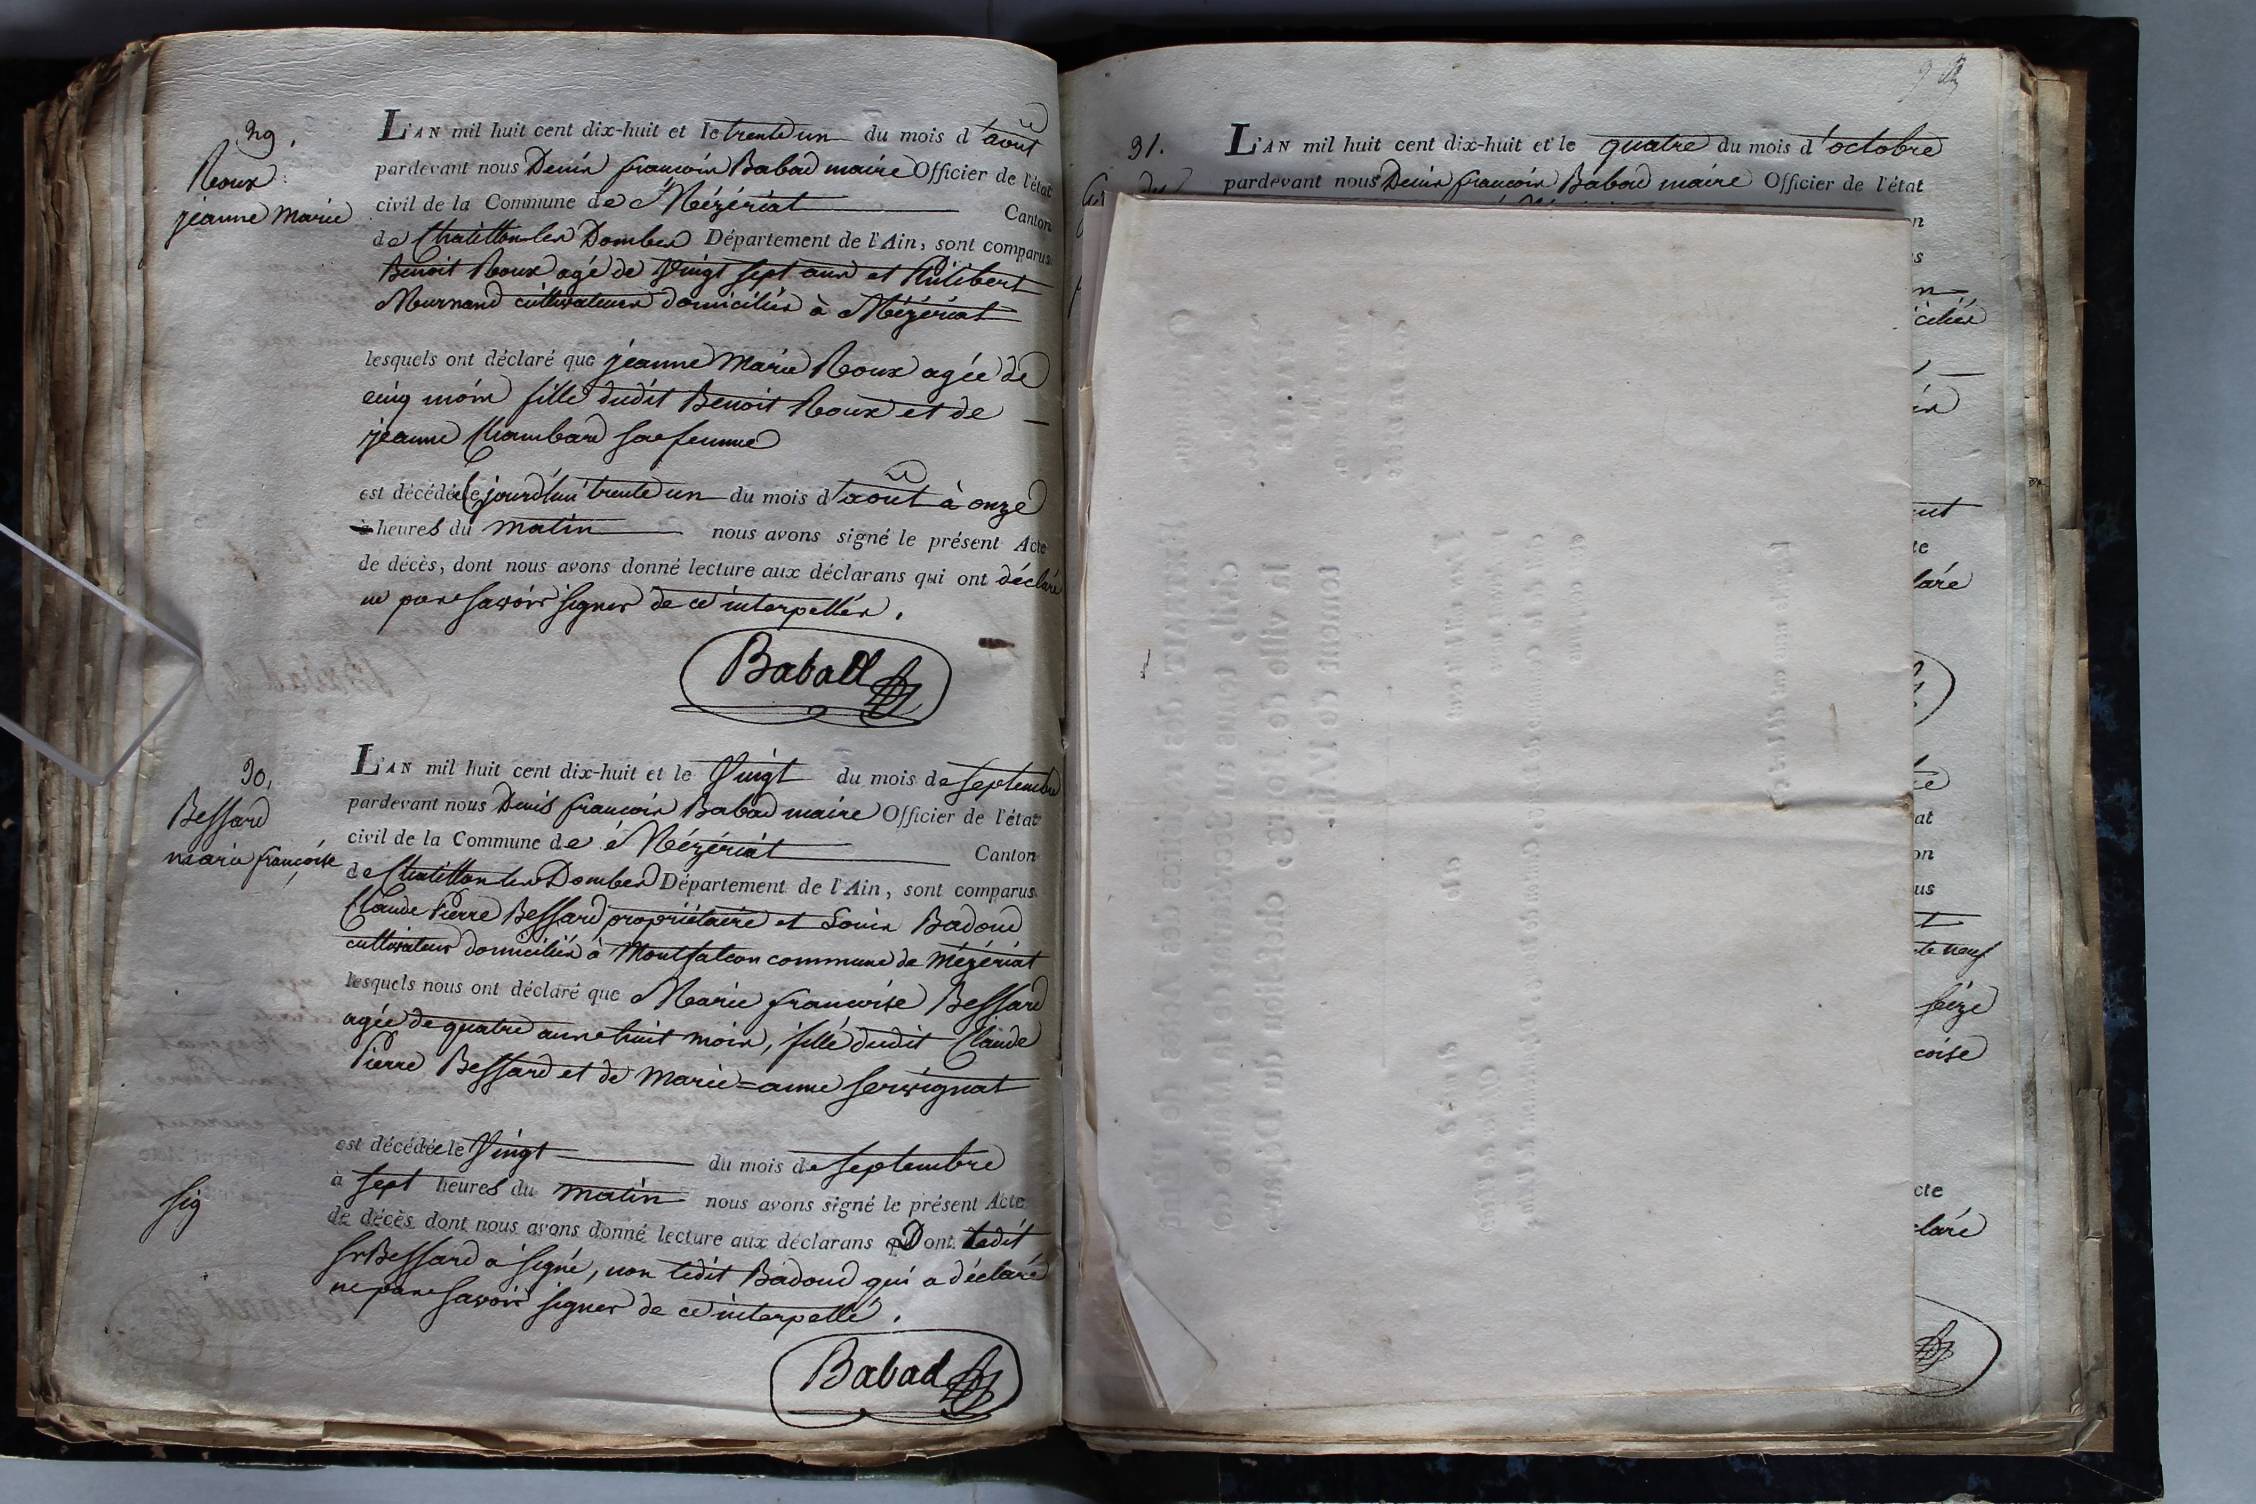 29.
Roux
jeanne Marie
L'AN mil huit cent dix-huit et le trente un du mois d'août
pardevant nous Denis françois Babad maire Officier de l'état
civil de la Commune de Mézériat Canton
de Chatillon les Dombes Département de l'Ain, sont comparus
Benoit Roux agé de Vingt sept ans et Philibert
Meurnand cultivateurs domiciliés à Mézériat
lesquels ont déclaré que jeanne Marie Roux agée de
cinq mois fille dudit Benoit Roux et de
jeanne Chambard sa femme
est décédée le jourd'hui trente un du mois d'août à onze
à heures du matin nous avons signé le présent Acte
de décès, dont nous avons donné lecture aux déclarans qui ont déclaré
ne pas savoir signer de ce interpellés.
Babad
30.
Bessard
marie françoise
L'AN mil huit cent dix-huit et le Vingt du mois de septembre
pardevant nous Denis françois Babad maire Officier de l'état
civil de la Commune de Mézériat Canton
de Chatillon les Dombes Département de l'Ain, sont comparus
Claude Pierre Bessard propriétaire et Louis Badoud
cultivateur domiciliés à Montfalcon commune de Mézériat
lesquels nous ont déclaré que Marie francoise Bessard
agée de quatre ans huit mois, fille dudit Claude
Pierre Bessard et de Marie=anne Servignat
est décédée le Vingt du mois de septembre
à sept heures du matin nous avons signé le présent Acte
de décès dont nous avons donné lecture aux déclarans Dont ledit
sig
Sr Bessard a signé, non ledit Badoud qui a déclaré
ne pas savoir signer de ce interpellé.
Babad
31.
L'AN mil huit cent dix-huit et le quatre du mois d'octobre
pardevant nous Denis françois Babad maire Officier de l'état